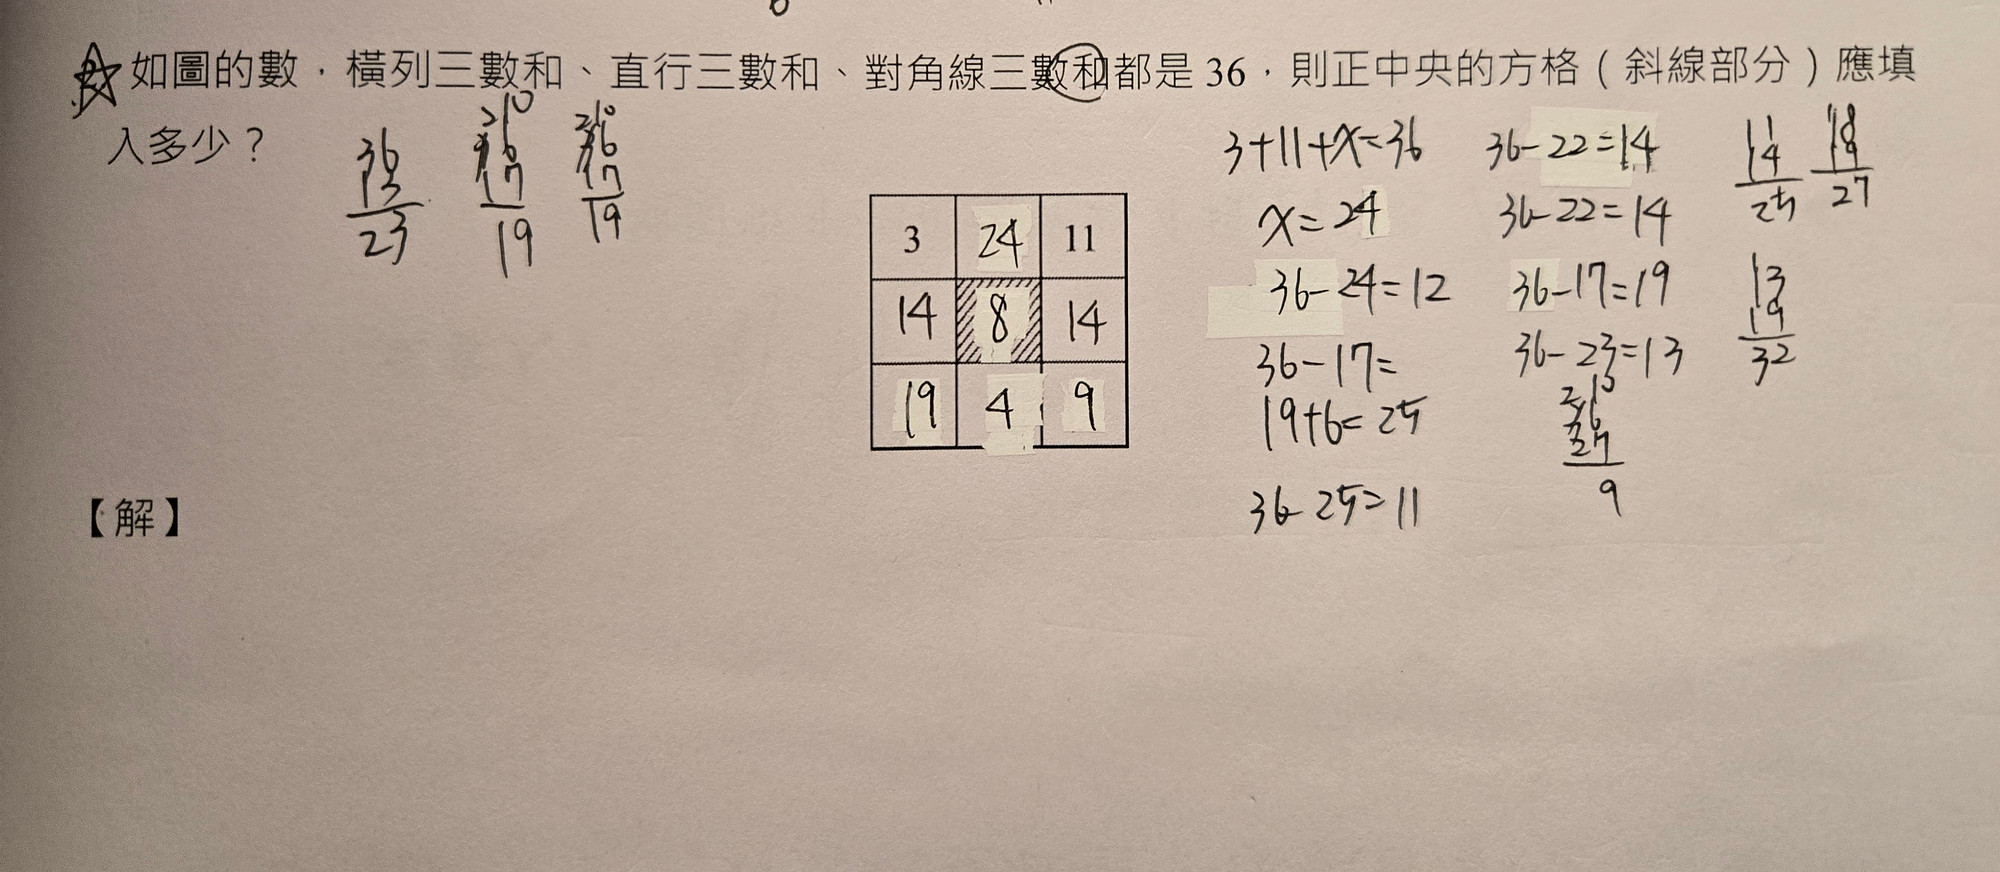 如圖的數，橫列三數和、直行三數和、對角線三數和都是 36，則正中央的方格（斜線部分）應填
入多少？
36
13
23
17
19
17
19
3 24 11
14 8 14
19 4 9
3+11+x=36
x=24
36-24=12
36-17=
19+6=25
36-25=11
36-22=14
36-22=14
36-17=19
36-23=13
27
9
11
14
25
27
13
19
32
【解】